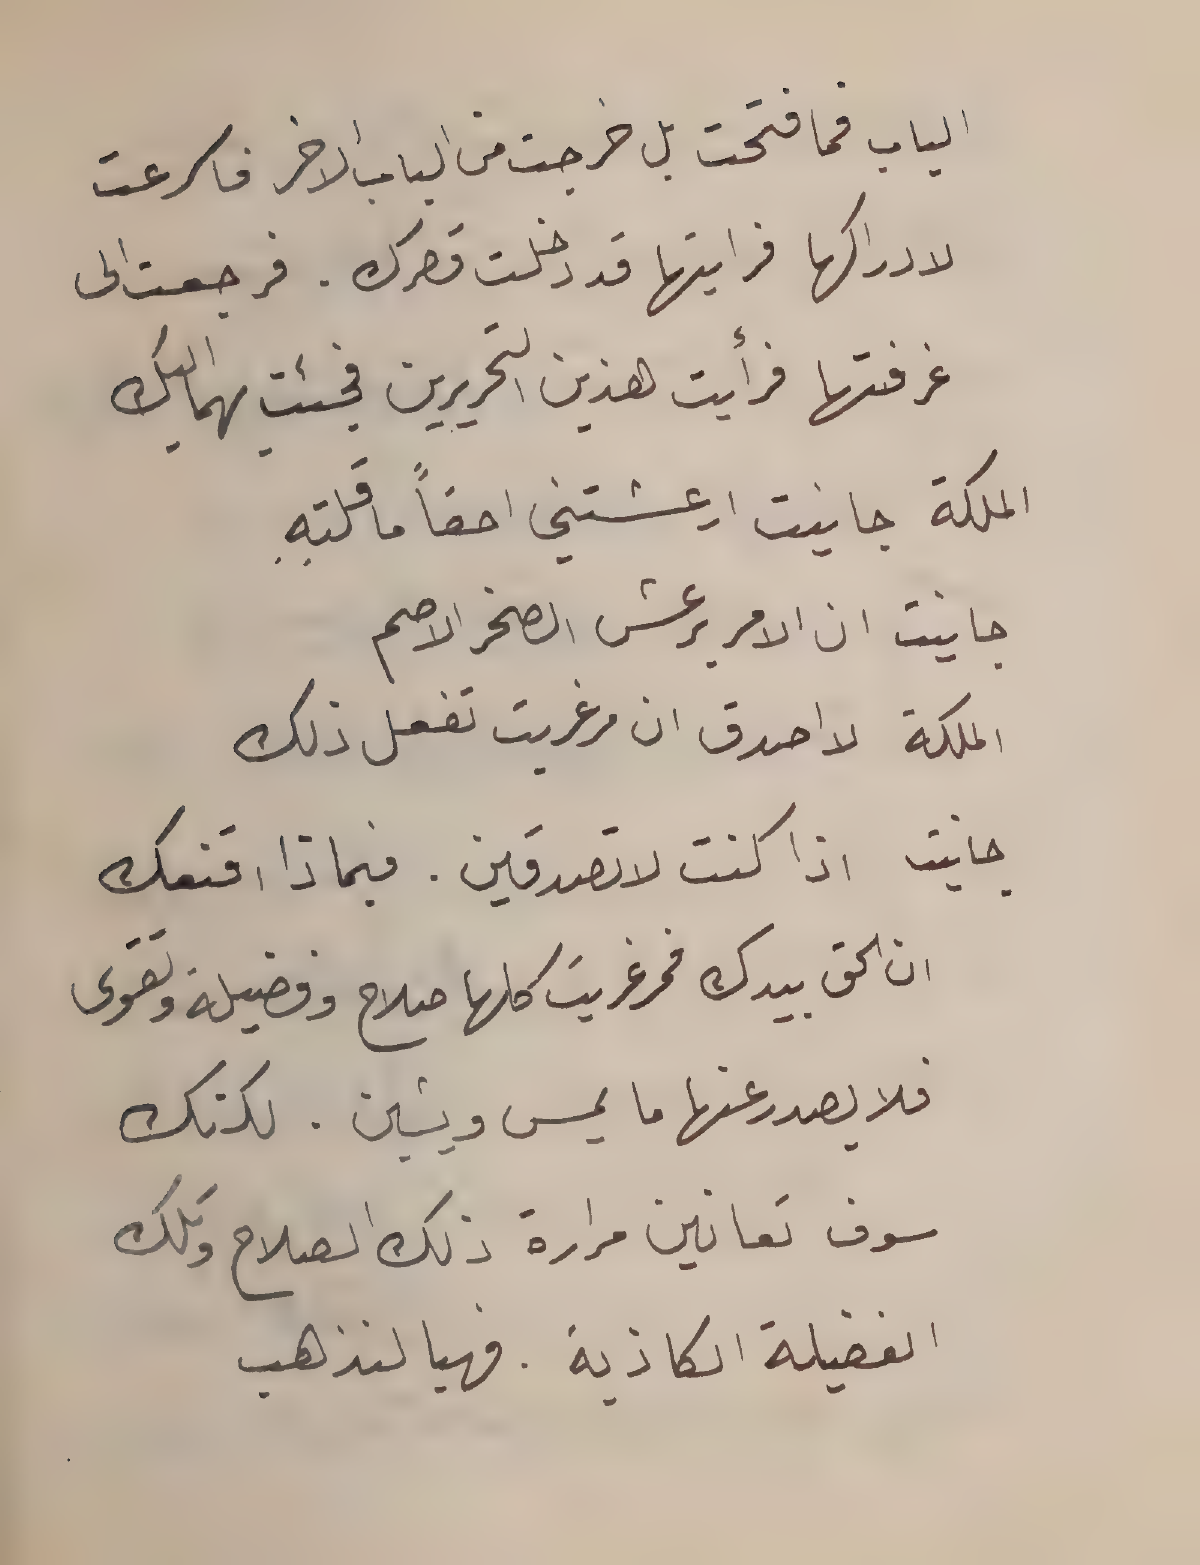 الباب فما فتحت بل خرجت من الباب الاخر فاسرعت
لادراكها فرايتها قد دخلت قصرك . فرجعت الى
غرفتها فرأيت هذين التحريرين فجئت بهما اليك
الملكة جانيت ارعشتني احقاً ما قلته
جانيت ان الامر يرعش الصخر الاصم
الملكة لا اصدق ان مرغريت تفعل ذلك
جانيت اذا كنت لا تصدقين . فبماذا اقنعك
ان الحق بيدك فمرغريت كلها صلاح وفضيلة وتقوى
فلا يصدر عنها ما يمس ويشين . لكنك
سوف تعانين مرارة ذلك الصلاح وتلك
الفضيلة الكاذبة . فهيا لنذهب